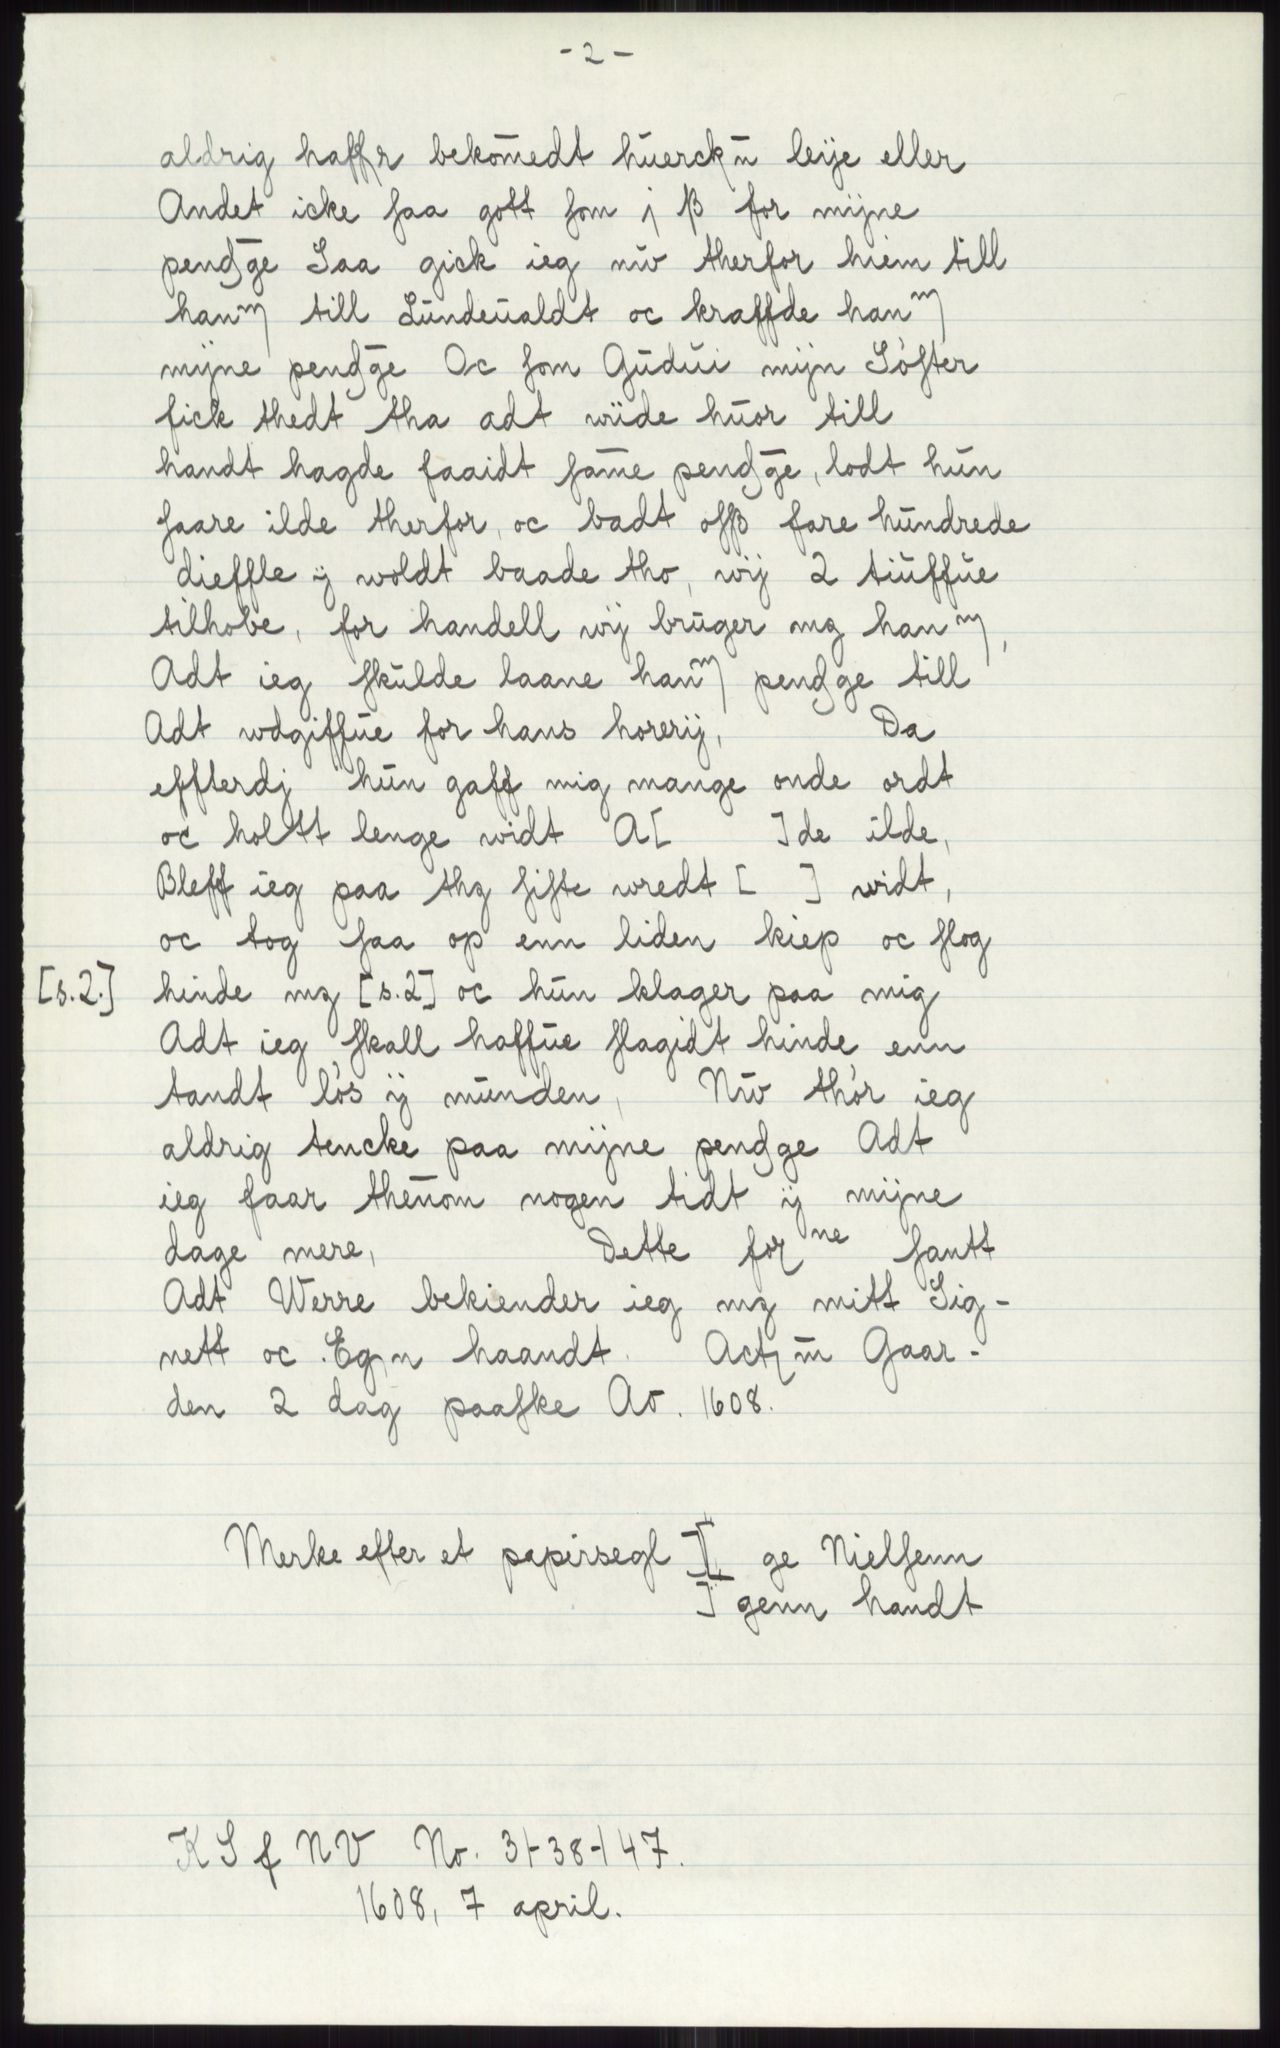 - 2 -
aldrig haffr bekom̄edt huerck̄n leije eller
Andet icke saa gott som j ß for mijne
pend̄ge Saa gick ieg nw therfor hiem till
hanm till Lundeualdt oc kraffde hanm
mijne pend̄ge Oc som Gudui mijn Søster
fick thedt tha adt wiide huor till
handt hagde faaidt sam̄e pend̄ge, lodt hun
saare ilde therfor, oc badt osß fare hundrede
dieffle ij woldt baade tho, wij 2 tiuffue
tilhobe, for handell wij bruger mz hanm,
Adt ieg skulde laane hanm pendge till
Adt wdgiffue for hans horerij, Da
effterdj hun gaff mig mange onde ordt
oc holtt lenge widt A[ ]de ilde,
Bleff ieg paa thz siste wredt [ ] widt,
oc tog saa op enn liden kiep oc slog
[s.2.] hinde mz [s.2] oc hun klager paa mig
Adt ieg skall haffue slagidt hinde enn
tandt løs ij munden, Nw thør ieg
aldrig tencke paa mijne pendge Adt
ieg faar thenom nogen tidt ij mijne
dage mere, Dette forne santt
Adt Werre bekiender ieg mz mitt Sig-
nett oc Egn haandt. Actz̄m Gaar-
den 2 dag paaske Ao. 1608.
Merke efter et papirsegl ][ ge Nielsenn
] genn handt
K S f N V No. 31-38-147.
1608, 7 april.